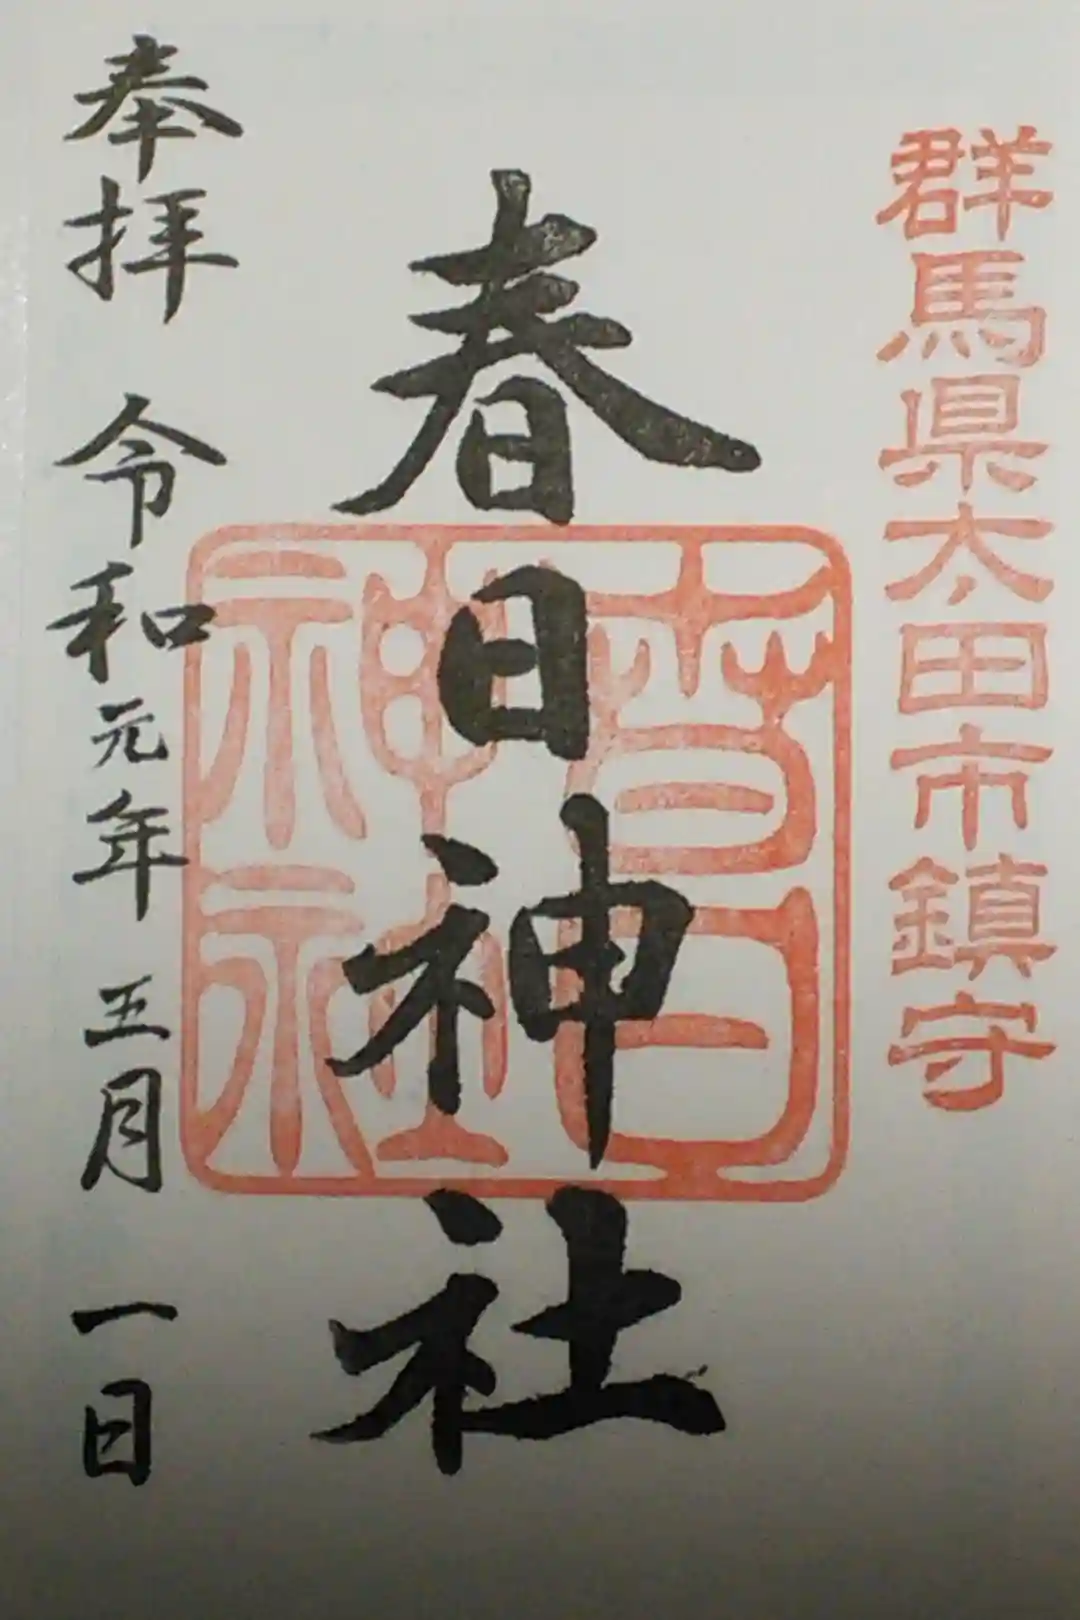 群馬県太田市鎮守
春日神社
春日神社
奉拝 令和元年 五月 一日